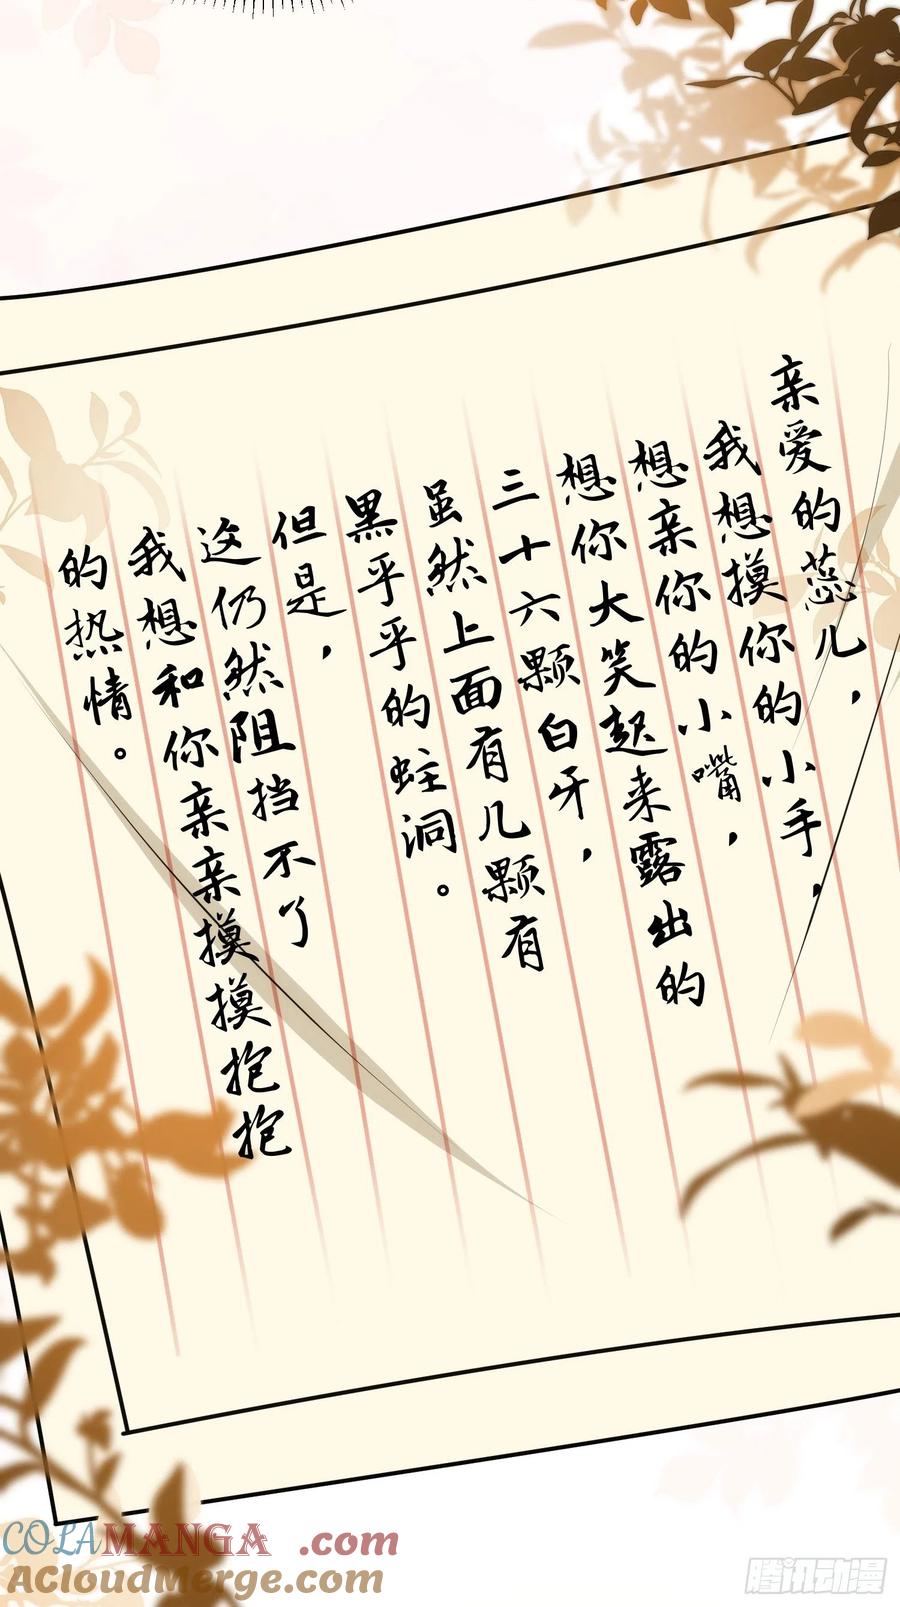 亲爱的蕊儿，
我想摸你的小手，
想亲你的小嘴，
想你大笑起来露出的
三十六颗白牙，
虽然上面有几颗有
黑乎乎的蛀洞。
但是，
这仍然阻挡不了
我想和你亲亲摸摸抱抱
的热情。
COLAMANGA.com
AcloudMerge.com
腾讯动漫